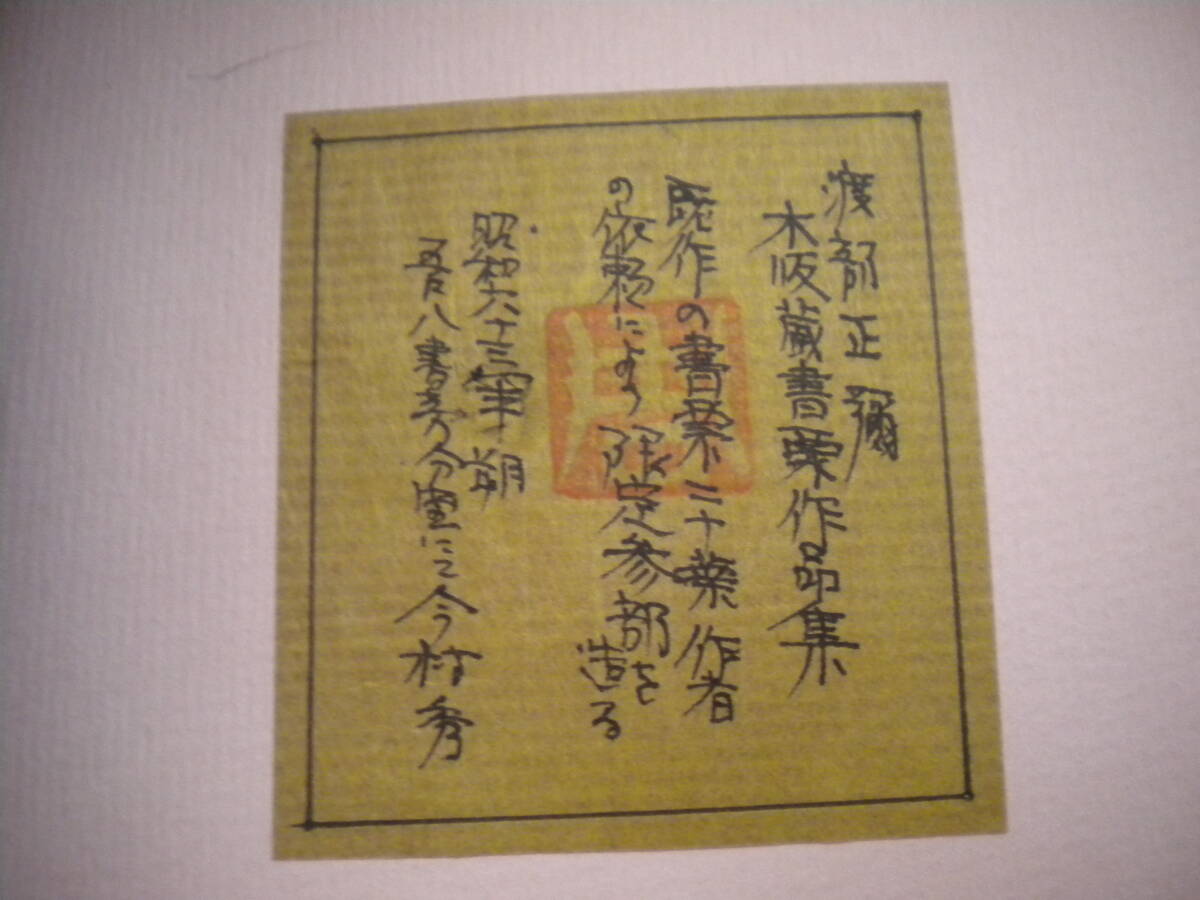 渡部正彌
木版蔵書票作品集
既作の書票三十葉作者
の依頼により限定参部を
造る
昭和六十三年朔
吾八書房分室にて今村秀